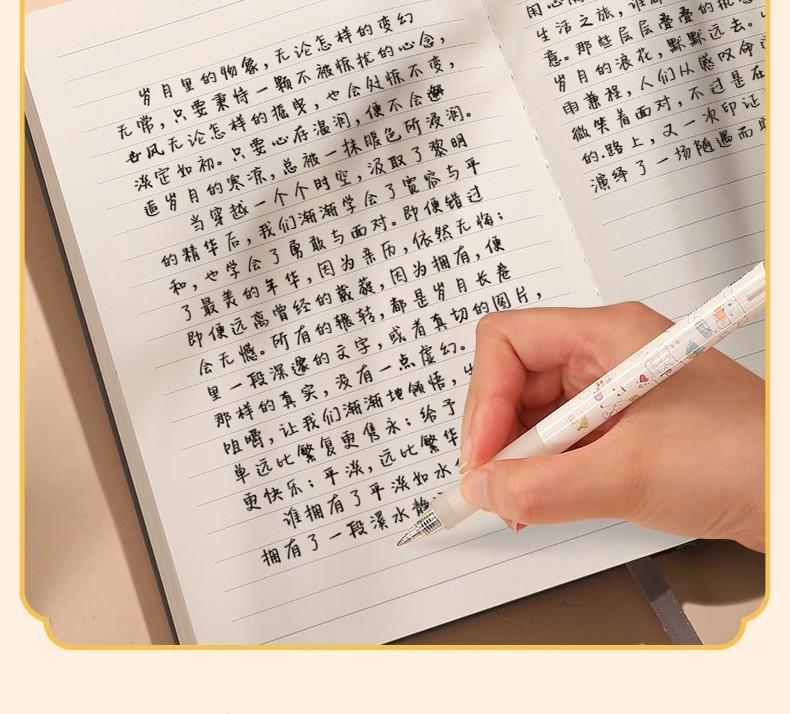 岁月里的物象，无论怎样的变幻
无常，只要秉持一颗不被惊扰的心念，
风无论怎样的摇曳，也会处惊不变，
淡定如初。只要心存温润，便不会
岁月的寒凉，总被一抹暖色所浸润。
当穿越一个个时空，汲取了黎明
的精华后，我们渐渐学会了宽容与平
和，也学会了勇敢与面对。即便错过
了最美的年华，因为亲历，依然无悔；
即便远离曾经的葳蕤，因为拥有，便
会无憾。所有的辗转，都是岁月长卷
里一段深邃的文字，或者真切的图片，
那样的真实，没有一点虚幻。
咀嚼，让我们渐渐地领悟，
单远比繁复更隽永；给予
更快乐；平淡，远比繁华
谁拥有了平淡如水
拥有了一段溪水静
用心
生活之旅，谁
意。那些层层叠叠的
岁月的浪花，默默远去。
雨兼程，人们从感叹命
微笑着面对，不过是在
的路上，又一次印证
演绎了一场随遇而